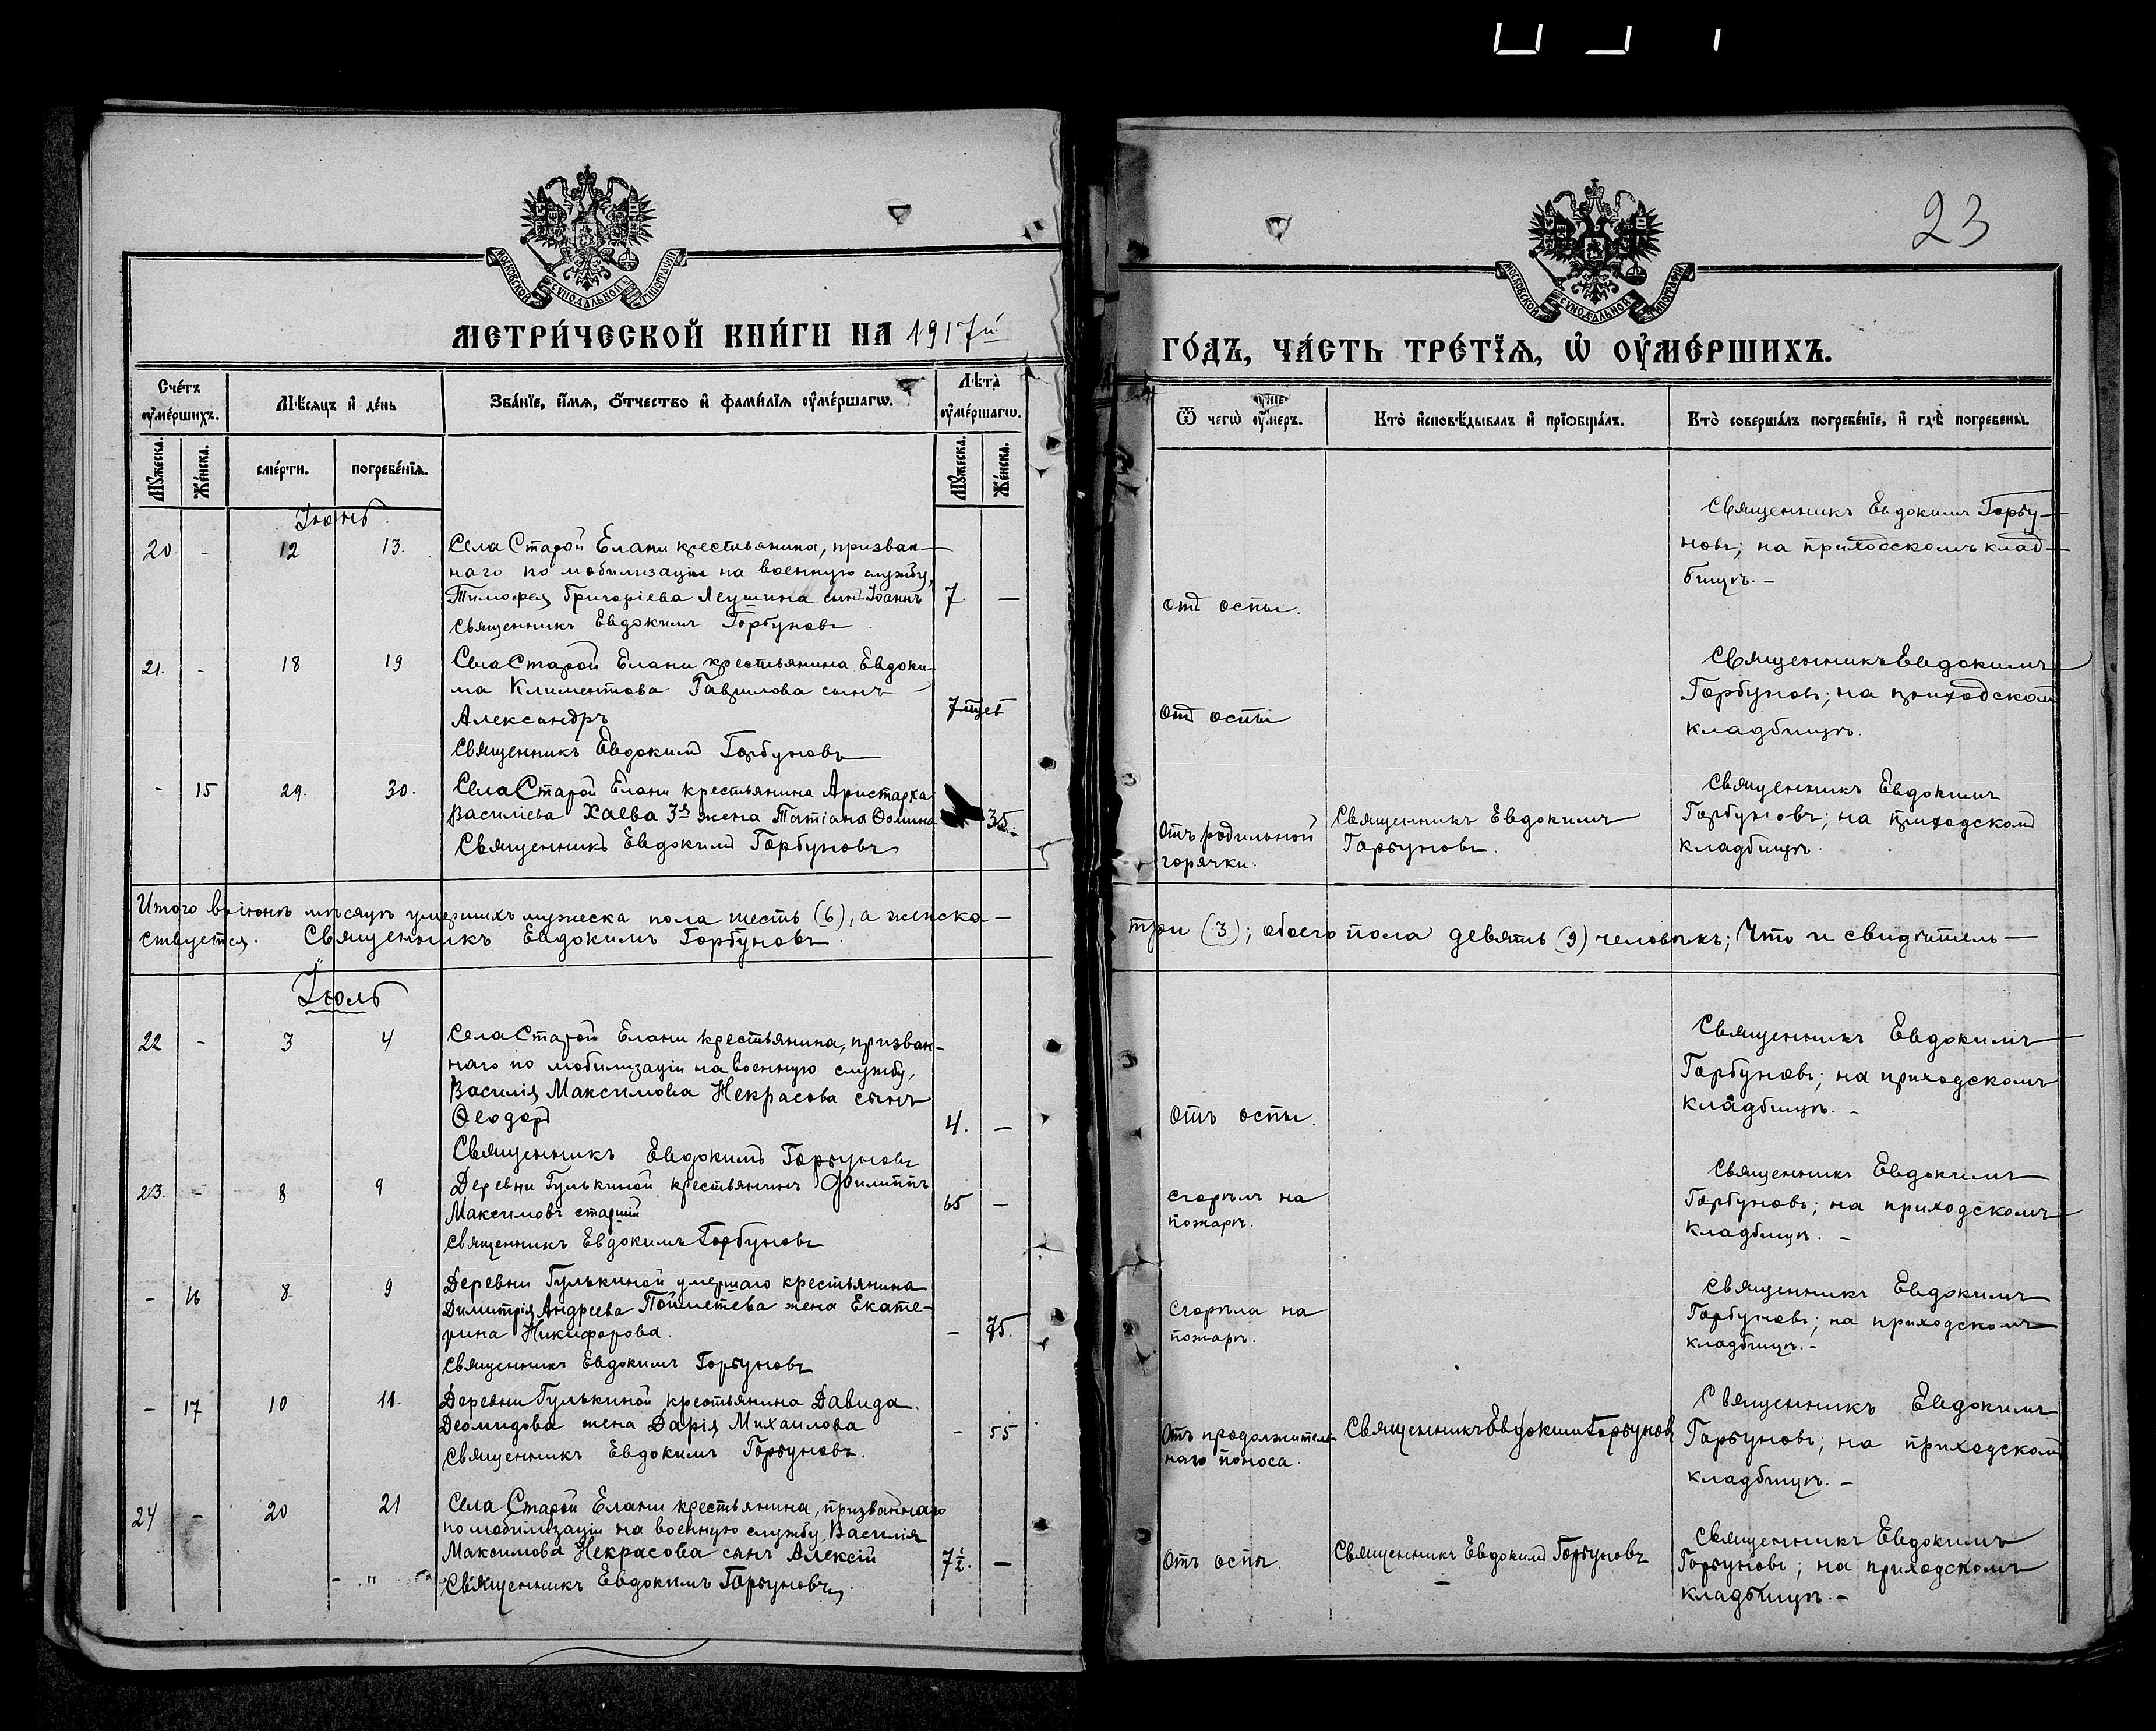 23
МОСКОВСКОЙ СѴНОДАЛЬНОЙ ТИПОГРАФІИ
МОСКОВСКОЙ СѴНОДАЛЬНОЙ ТИПОГРАФІИ
МЕТРИ́ЧЕСКОЙ КНИ́ГИ НА 1917й
ГО́ДЪ, ЧА́СТЬ ТРЕ́ТЇѦ, Ѡ҆ ОУ҆МЕ́РШИХЪ.
Сче́тъ оу҆ме́ршихъ.
Мѣ́сяцъ и҆ де́нь
Зва́нїе, и҆́мѧ, ѻ҆́тчество и҆ фами́лїѧ оу҆ме́ршагѡ.
Лѣ̑та оу҆ме́ршагѡ.
Мꙋ́жеска. Же́нска.
сме́рти. погребе́нїѧ.
Мꙋ́жеска. Же́нска.
Ѿ чегѡ̀ оу҆́меръ.
Кто̀ и҆сповѣ́дывалъ и҆ прїѡбща́лъ.
Кто̀ соверша́лъ погребе́нїе, и҆ гдѣ̀ погребены̀.
Іюнь.
20 - 12 13.
Села Старой Елани крестьянина, призван-
наго по мобилизаціи на военную службу,
Тимофея Григоріева Леушина сынъ Іоаннъ
Священникъ Евдокимъ Горбуновъ.
7 —
отъ оспы.
Священникъ Евдокимъ Горбу-
новъ; на приходскомъ клад-
бищѣ. -
21. - 18 19
Села Старой Елани крестьянина Евдоки-
ма Климентова Гаврилова сынъ
Александръ
Священникъ Евдокимъ Горбуновъ
отъ оспы
Священникъ Евдокимъ
Горбуновъ; на приходскомъ
кладбищѣ.
- 15 29. 30.
Села Старой Елани крестьянина Аристарха
Василіева Хаева 3я жена Татіана Фомина
Священникъ Евдокимъ Горбуновъ
35.
Отъ родильной
горячки.
Священникъ Евдокимъ
Горбуновъ.
Священникъ Евдокимъ
Горбуновъ; на приходскомъ
кладбищѣ.
Итого въ іюнѣ мѣсяцѣ умершихъ мужеска пола шесть (6), а женска —
три (3); обоего пола девять (9) человѣкъ; Что и свидѣтель—
ствуется. Священникъ Евдокимъ Горбуновъ.
Іюль
22 - 3 4
Села Старой Елани крестьянина, призван-
наго по мобилизаціи на военную службу,
Василія Максимова Некрасова сынъ
Ѳеодоръ
Священникъ Евдокимъ Горбуновъ
4. —
Отъ оспы.
Священникъ Евдокимъ
Горбуновъ; на приходскомъ
кладбищѣ. -
23. - 8 9
Деревни Гулькиной крестьянинъ Филиппъ
Максимовъ старшій
Священникъ Евдокимъ Горбуновъ
65 —
сгорѣлъ на
пожарѣ.
Священникъ Евдокимъ
Горбуновъ; на приходскомъ
кладбищѣ. -
- 16 8 9
Деревни Гулькиной умершаго крестьянина
Димитрія Андреева жена Екате-
рина Никифорова.
Священникъ Евдокимъ Горбуновъ
- 75.
Сгорѣла на
пожарѣ.
Священникъ Евдокимъ
Горбуновъ; на приходскомъ
кладбищѣ. -
- 17 10 11.
Деревни Гулькиной крестьянина Давида
Деомидова жена Дарія Михаилова
Священникъ Евдокимъ Горбуновъ.
- 55
Отъ продолжитель-
наго поноса.
Священникъ Евдокимъ Горбуновъ
Священникъ Евдокимъ
Горбуновъ; на приходскомъ
кладбищѣ. -
24 - 20 21
Села Старой Елани крестьянина, призваннаго
по мобилизаціи на военную службу, Василія
Максимова Некрасова сынъ Алексій
Священникъ Евдокимъ Горбуновъ
7½. —
Отъ оспы.
Священникъ Евдокимъ Горбуновъ
Священникъ Евдокимъ
Горбуновъ; на приходскомъ
кладбищѣ. -